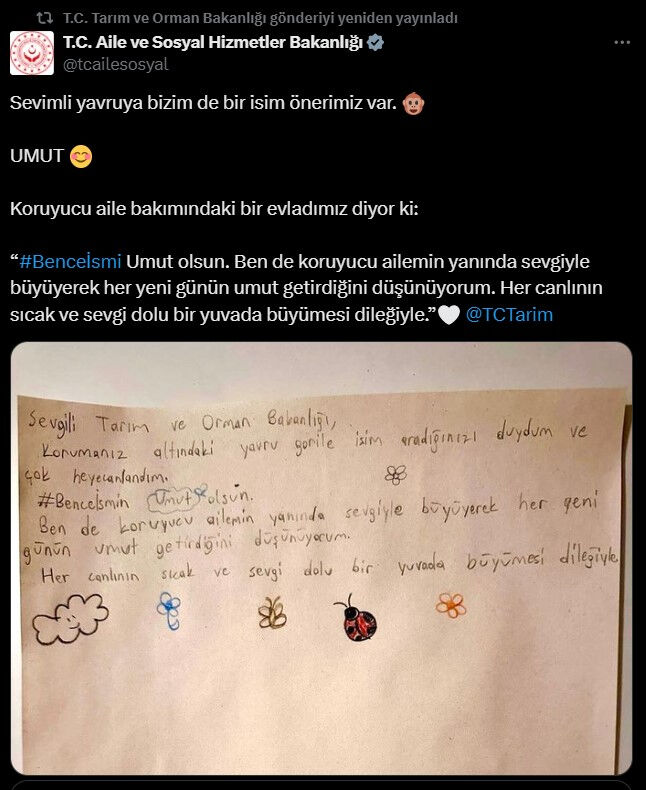 T.C. Tarım ve Orman Bakanlığı gönderiyi yeniden yayınladı
T.C. Aile ve Sosyal Hizmetler Bakanlığı
@tcailesosyal
Sevimli yavruya bizim de bir isim önerimiz var. 🐵
UMUT 😊
Koruyucu aile bakımındaki bir evladımız diyor ki:
“#Benceİsmi Umut olsun. Ben de koruyucu ailemin yanında sevgiyle
büyüyerek her yeni günün umut getirdiğini düşünüyorum. Her canlının
sıcak ve sevgi dolu bir yuvada büyümesi dileğiyle.”🤍 @TCTarim
Sevgili Tarım ve Orman Bakanlığı,
Korumanız altındaki yavru gorile isim aradığınızı duydum ve
çok heyecanlandım.
#Benceİsmin Umut olsun.
Ben de koruyucu ailemin yanında sevgiyle büyüyerek her yeni
günün umut getirdiğini düşünüyorum.
Her canlının sıcak ve sevgi dolu bir yuvada büyümesi dileğiyle